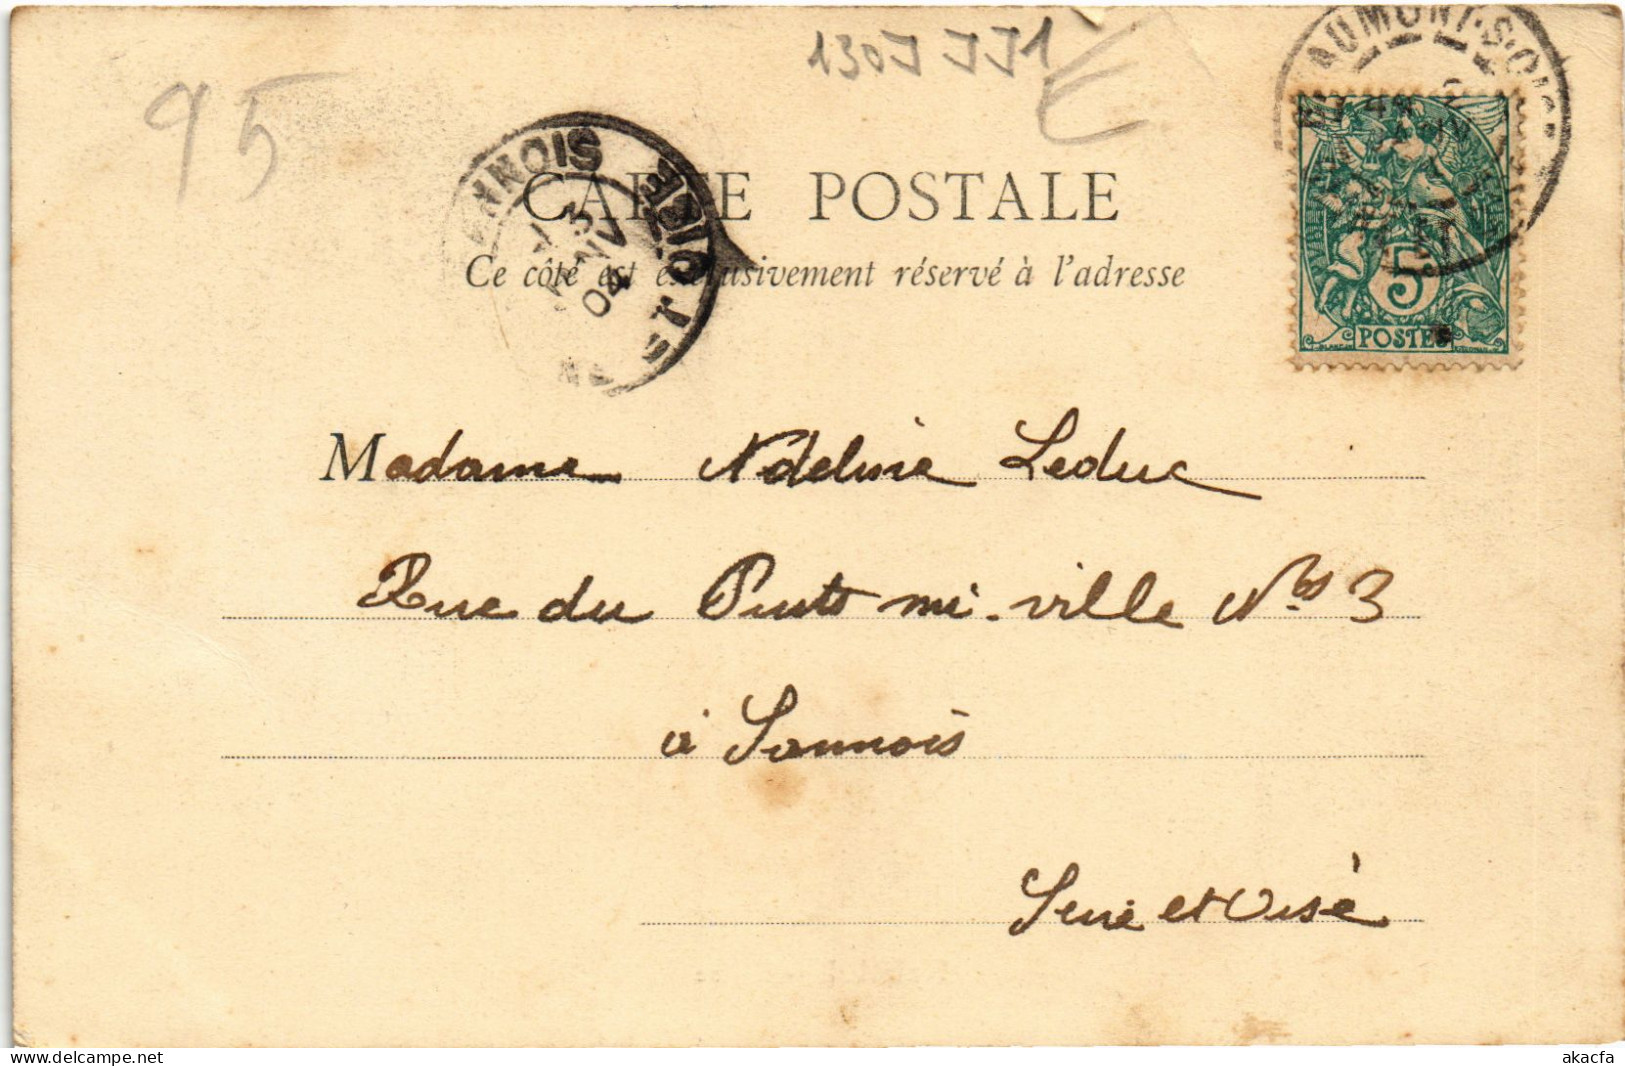 130J JJ1 E
95
BEAUMONT-S-OISE
SANNOIS
3 JANV 04
SEINE-ET-OISE
CARTE POSTALE
Ce côté est exclusivement réservé à l'adresse
5
POSTES
Madame Adeline Leduc
Rue du Puits mi-ville Nos 3
à Sannois
Seine et Oise
delcampe.net
akacfa